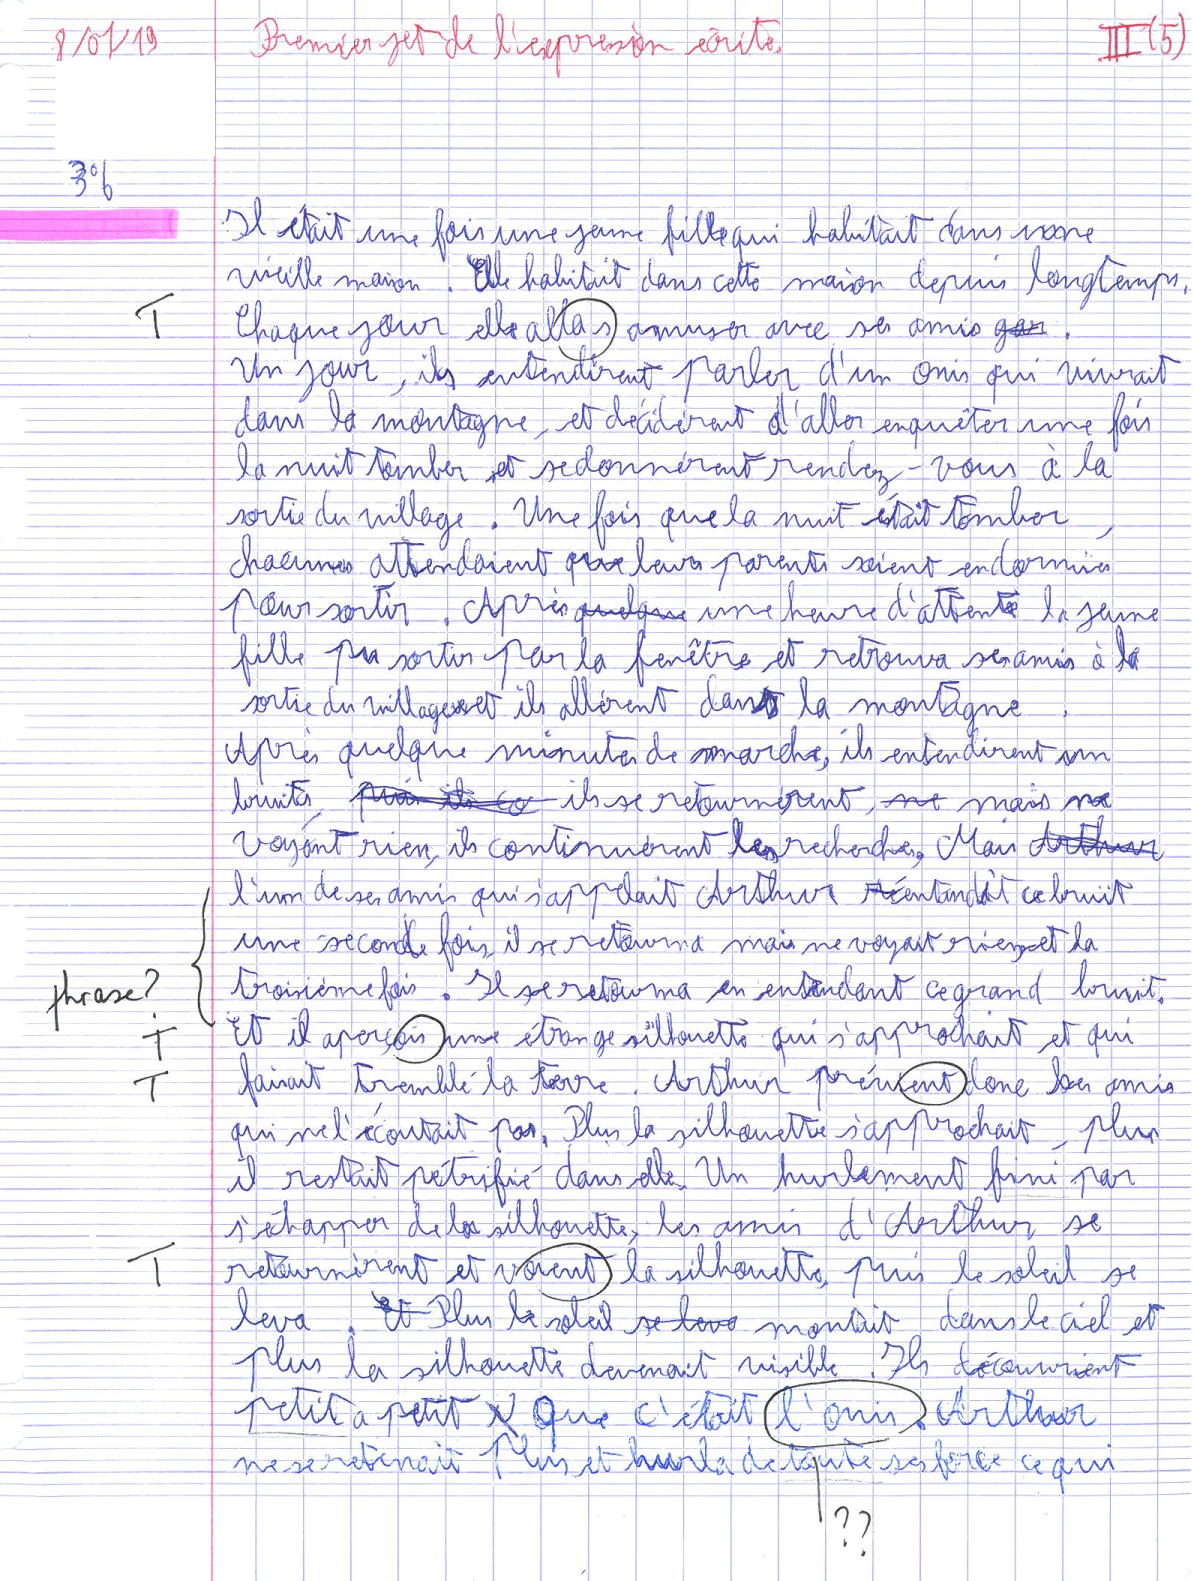 8/01/19 Premier jet de l'expression écrite. III (5)
3°6
Il était une fois une jeune fille qui habitait dans une
vieille maison. Elle habitait dans cette maison depuis longtemps.
T Chaque jour elle allas amuser avec ses amis.
Un jour, ils entendirent parler d'un onis qui vivrait
dans la montagne, et décidèrent d'aller enquêter une fois
la nuit tomber et se donnèrent rendez-vous à la
sortie du village. Une fois que la nuit était tomber,
chacunes attendaient que leurs parents soient endormies
pour sortir. Après quelque une heure d'attente la jeune
fille pu sortir par la fenêtre et retrouva ses amis à la
sortie du village et ils allèrent dans la montagne.
Après quelque minutes de marche, ils entendirent un
bruits, puis ils se retournèrent, mais ne
voyant rien, ils continuèrent les recherches. Mais Arthur
l'un de ses amis qui s'appelait Arthur entandit ce bruit
une seconde fois, il se retourna mais ne voyait rien et la
phrase? troisième fois. Il se retourna en entendant ce grand bruit.
T Et il aperçois une étrange silhouette qui s'approchait et qui
T faisait tremblé la terre. Arthur prévient donc ses amis
qui ne l'écoutait pas. Plus la silhouette s'approchait, plus
il restait pétrifié dans elle. Un hurlement fini par
s'échapper de la silhouette, les amis d'Arthur se
T retournirent et voient la silhouette, puis le soleil se
leva. Et Plus le soleil se leva montait dans le ciel et
plus la silhouette devenait visible. Ils découvrient
petit a petit que c'était l'onis. Arthur
ne se retenait plus et hurla de toute ses force ce qui
??